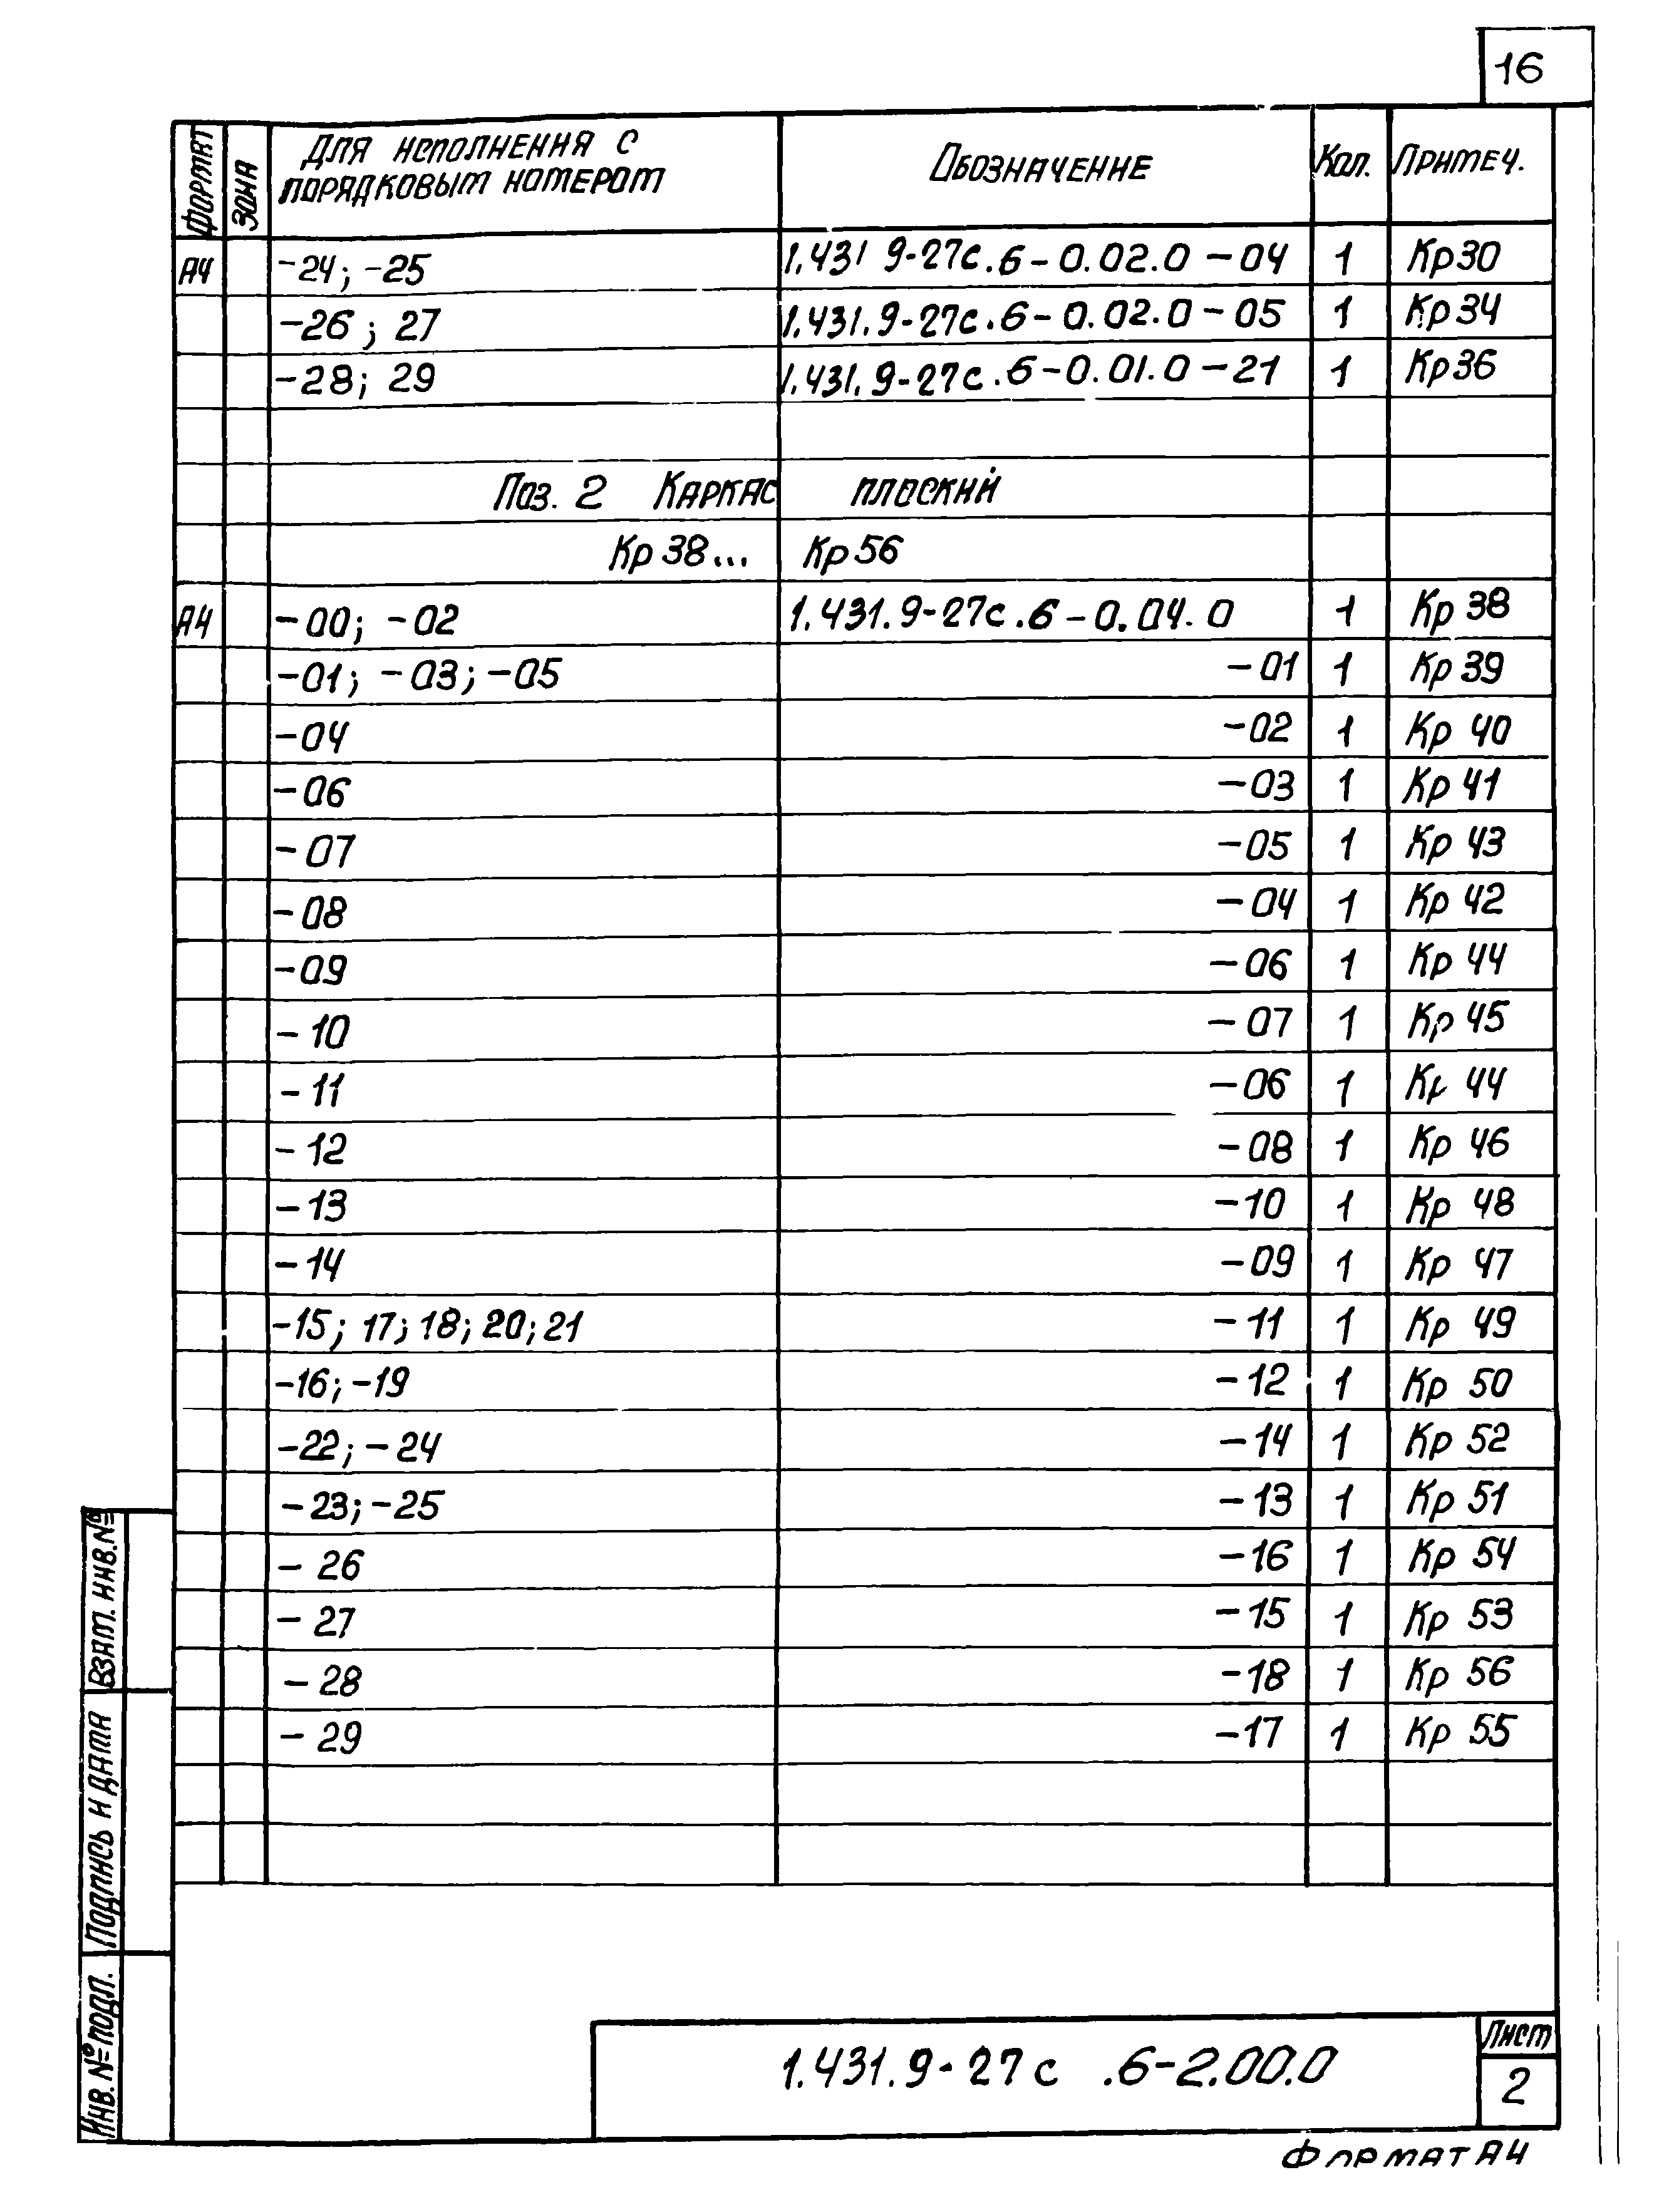 16
Формат Зона Для исполнения с порядковым номером Обозначение Кол. Примеч.
А4 -24; -25 1.431 9-27с.6-0.02.0-04 1 Кр30
-26; 27 1.431.9-27с.6-0.02.0-05 1 Кр34
-28; 29 1.431.9-27с.6-0.01.0-21 1 Кр36
Поз. 2 Каркас плоский
Кр38... Кр56
А4 -00; -02 1.431.9-27с.6-0.04.0 1 Кр38
-01; -03; -05 -01 1 Кр39
-04 -02 1 Кр 40
-06 -03 1 Кр 41
-07 -05 1 Кр 43
-08 -04 1 Кр 42
-09 -06 1 Кр 44
-10 -07 1 Кр 45
-11 -06 1 Кр 44
-12 -08 1 Кр 46
-13 -10 1 Кр 48
-14 -09 1 Кр 47
-15; 17; 18; 20; 21 -11 1 Кр 49
-16; -19 -12 1 Кр 50
-22; -24 -14 1 Кр 52
-23; -25 -13 1 Кр 51
-26 -16 1 Кр 54
-27 -15 1 Кр 53
-28 -18 1 Кр 56
-29 -17 1 Кр 55
Взам. инв.№
Подпись и дата
Инв. № подл.
1.431.9-27с .6-2.00.0
Лист
2
Формат А4